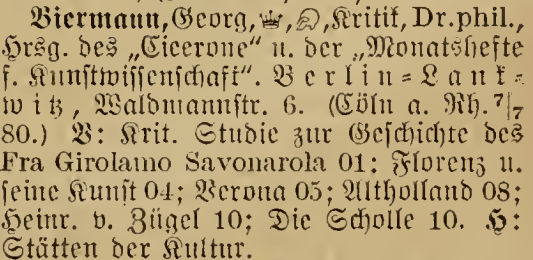 Biermann, Georg, Kritik, Dr. phil.,
Hrsg. des „Cicerone“ u. der „Monatshefte
f. Kunstwissenschaft“. Berlin=Lank=
witz, Waldmannstr. 6. (Cöln a. Rh. 7/7
80.) B: Krit. Studie zur Geschichte des
Fra Girolamo Savonarola 01: Florenz u.
seine Kunst 04; Verona 05; Altholland 08;
Heinr. v. Zügel 10; Die Scholle 10. H:
Stätten der Kultur.